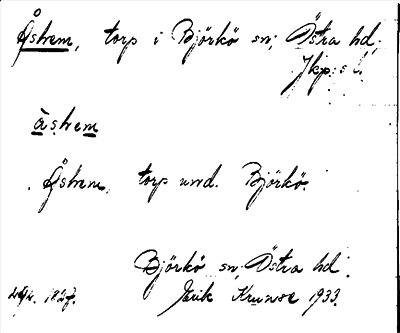 Åshem, torp i Björkö sn; Östra hd;
Jkp:s l.
åshem
Åshem, torp und. Björkö.
Björkö sn; Östra hd.
Erik Krunse 1933.